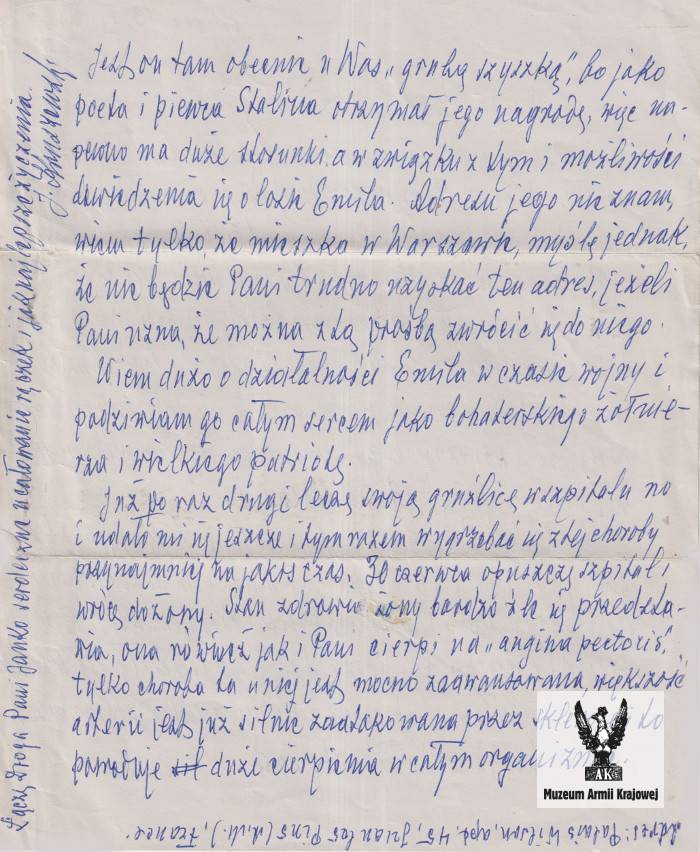 Jest on tam obecnie u Was „grubą szyszką", bo jako
poeta i piewca Stalina otrzymał jego nagrodę, więc na-
pewno ma duże stosunki a w związku z tym i możliwości
dowiedzenia się o losie Emila. Adresu jego nie znam,
wiem tylko, że mieszka w Warszawie, myślę jednak,
że nie będzie Pani trudno uzyskać ten adres, jeżeli
Pani uzna, że można z tą prośbą zwrócić się do niego.
Wiem dużo o działalności Emila w czasie wojny i
podziwiam go całym sercem jako bohaterskiego żołnie-
rza i wielkiego patriotę.
Już po raz drugi leczę swoją gruźlicę w szpitalu no
i udało mi się jeszcze i tym razem wygrzebać się z tej choroby
przynajmniej na jakoś czas. 30 czerwca opuszczę szpital i
wrócę do żony. Stan zdrowia żony bardzo źle się przedsta-
wia, ona również jak i Pani cierpi na „angina pectoris",
tylko choroba ta u niej jest mocno zaawansowana, większość
arterii jest już silnie zaatakowana przez i to
powoduje duże cierpienia w całym organizmie.
Łączę Droga Pani Janko serdeczne ucałowania rączek i jaknajlepsze życzenia.
Adres: Palais Wilson, apt. 45, Juan les Pins (A.M.), France
AK
Muzeum Armii Krajowej